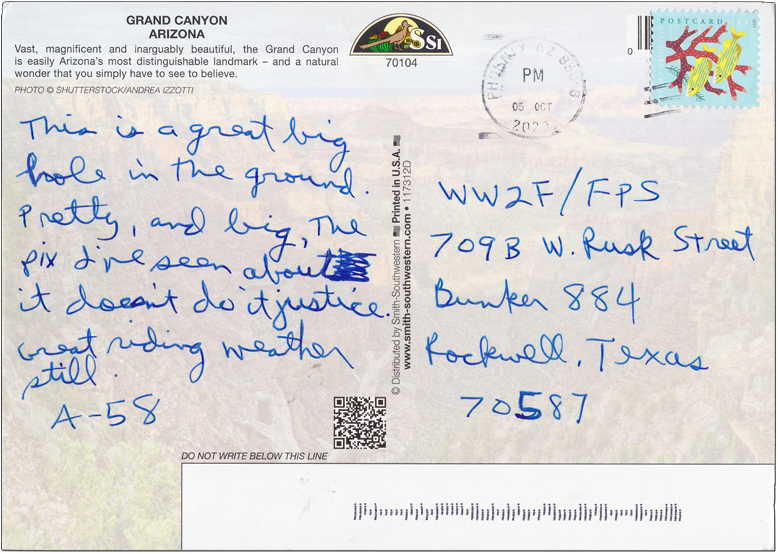 GRAND CANYON
ARIZONA
Vast, magnificent and inarguably beautiful, the Grand Canyon
is easily Arizona's most distinguishable landmark – and a natural
wonder that you simply have to see to believe.
PHOTO © SHUTTERSTOCK/ANDREA IZZOTTI
SSi
70104
PHOENIX AZ
PM
05 OCT
POSTCARD
0
This is a great big
hole in the ground.
Pretty, and big, The
pix I've seen about
it doesn't do it justice.
Great riding weather
still.
A-58
© Distributed by Smith-Southwestern Printed in U.S.A.
www.smith-southwestern.com • 117312D
WW2F/FPS
709B W. Rusk Street
Bunker 884
Rockwell, Texas
70587
DO NOT WRITE BELOW THIS LINE